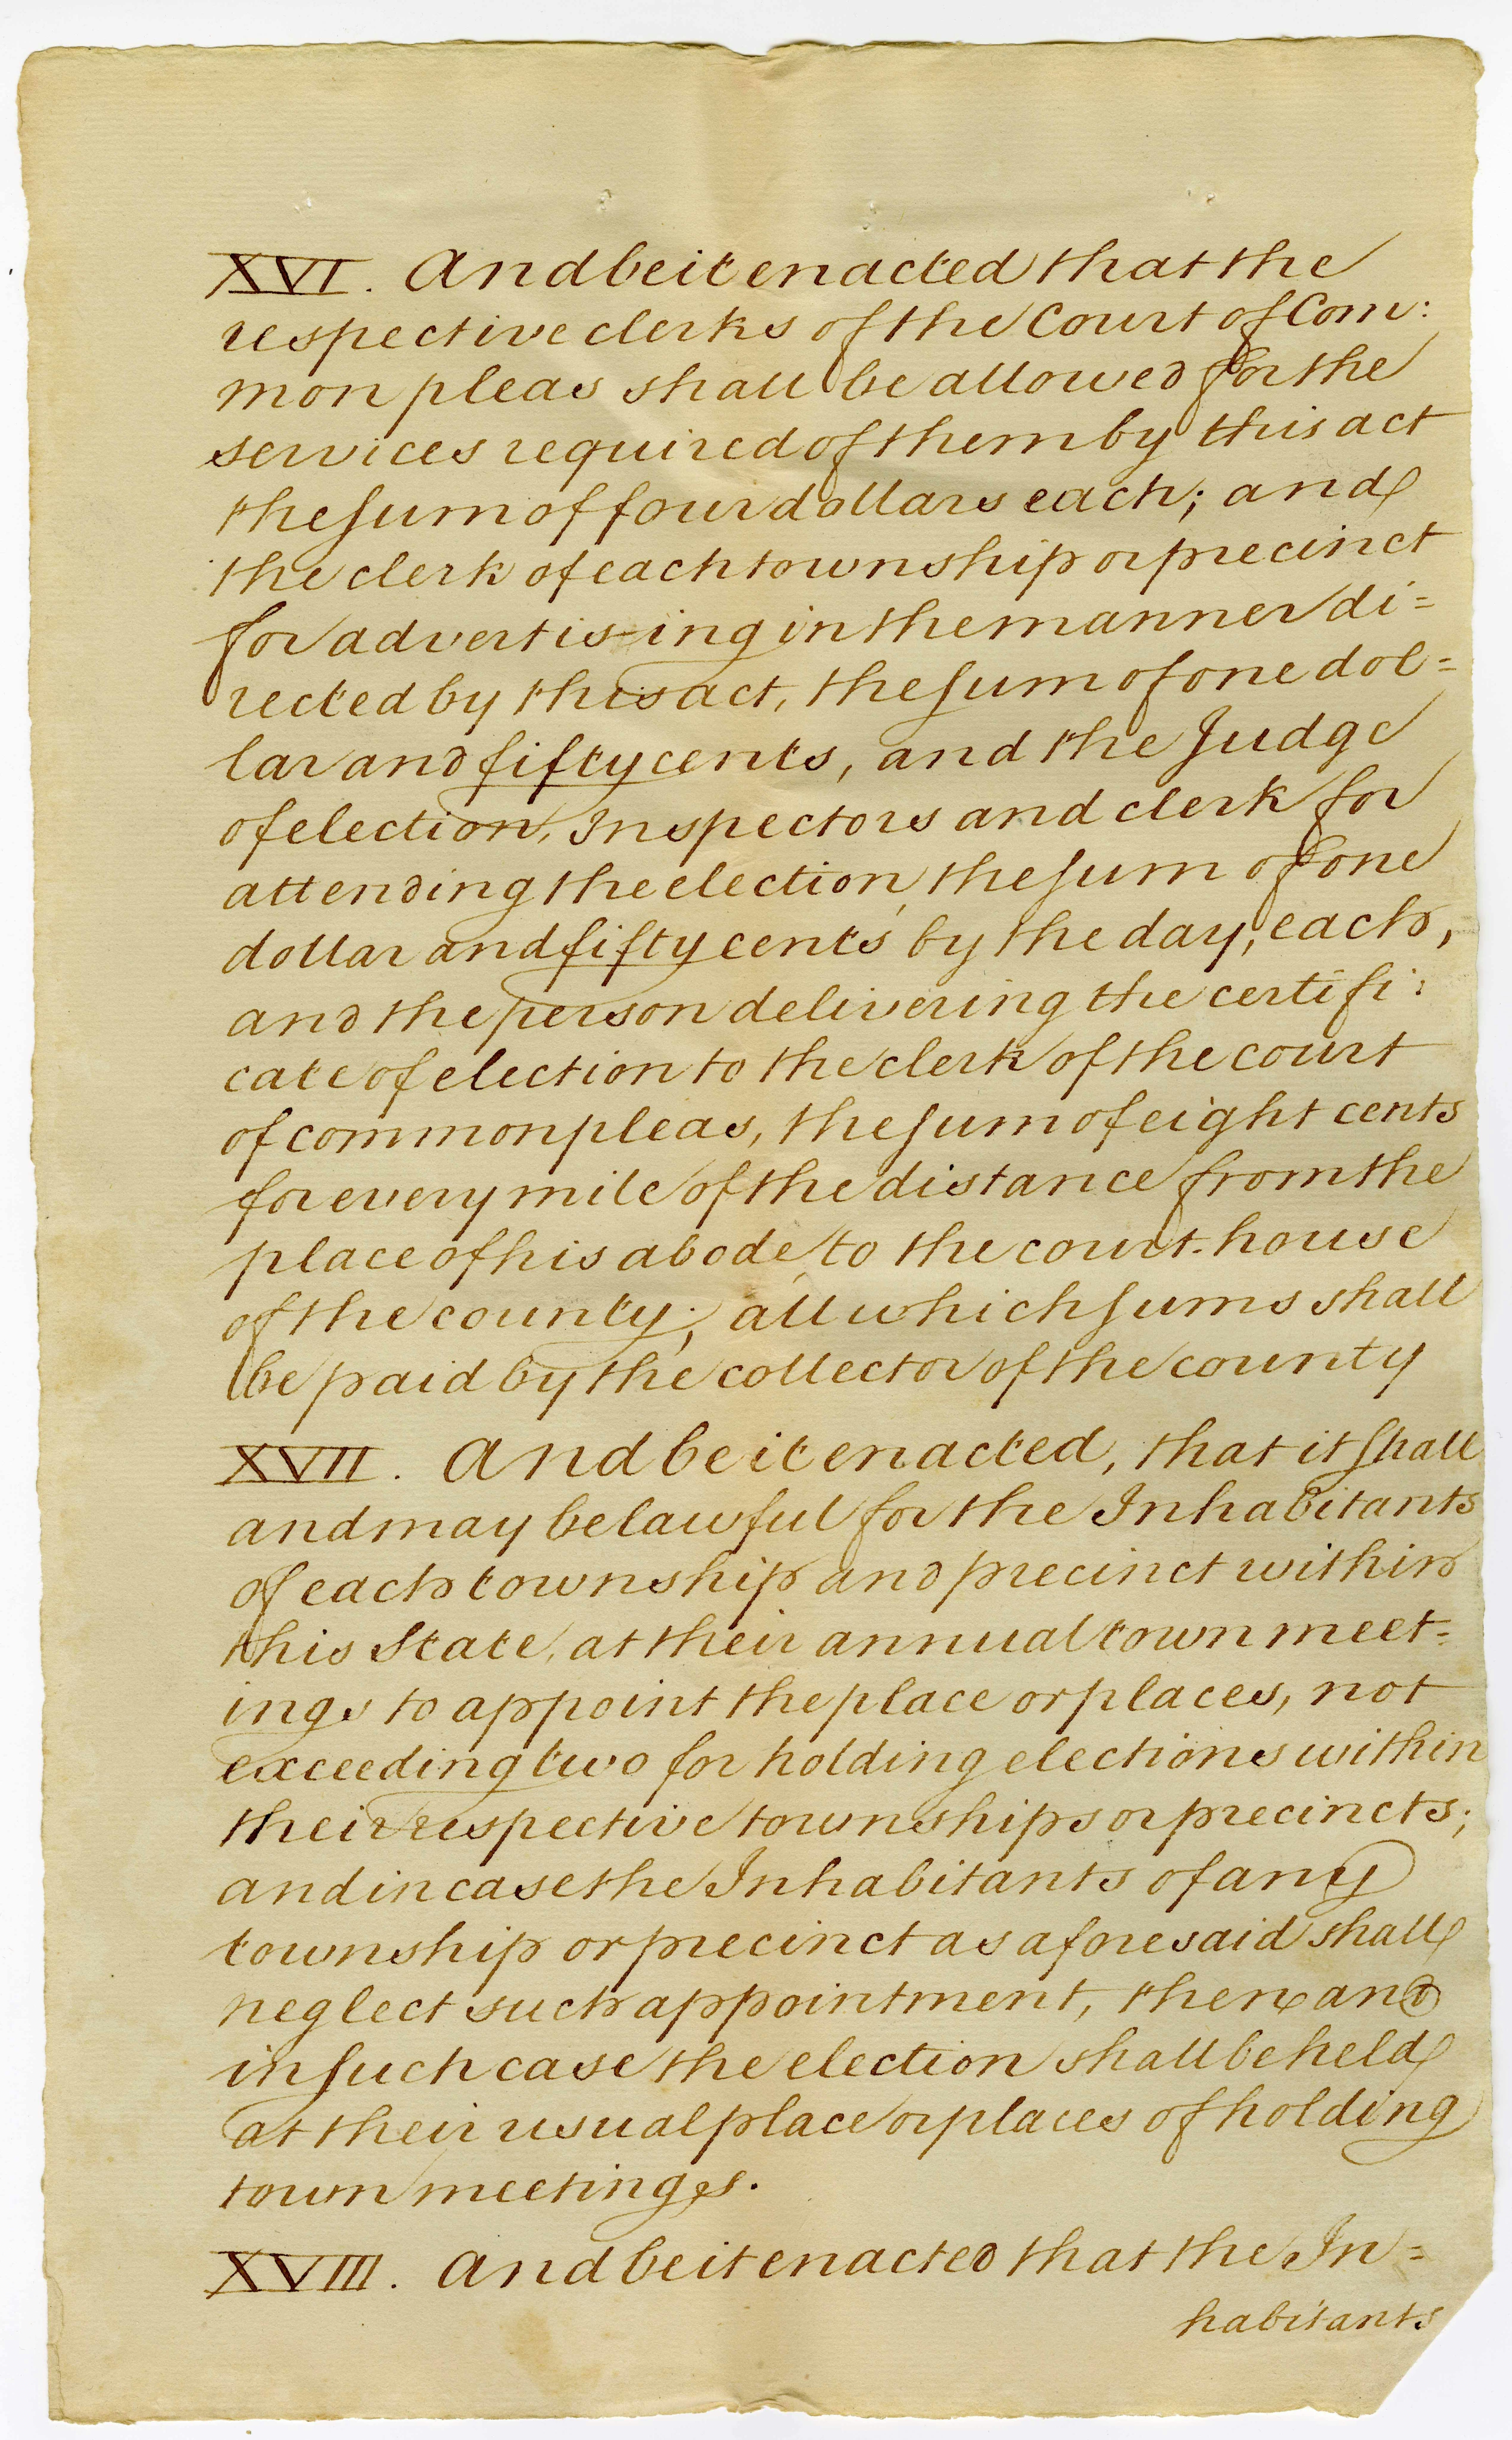 XVI. And be it enacted that the
respective clerks of the Court of Com:
mon pleas shall be allowed for the
services required of them by this act
the sum of four dollars each; and
the clerk of each township or precinct
for advertis-ing in the manner di=
rected by this act, the sum of one dol=
lar and fifty cents, and the Judge
of election, Inspectors and clerk for
attending the election, the sum of one
dollar and fifty cents by the day, each,
and the person delivering the certifi:
cate of election to the clerk of the court
of common pleas, the sum of eight cents
for every mile of the distance from the
place of his abode, to the court-house
of the county; all which sums shall
be paid by the collector of the county
XVII. And be it enacted, that it shall
and may be lawful for the Inhabitants
of each township and precinct within
this State, at their annual town meet=
ings to appoint the place or places, not
exceeding two for holding elections within
their respective townships or precincts;
and in case the Inhabitants of any
township or precinct as aforesaid shall
neglect such appointment, then and
in such case the election shall be held
at their usual place or places of holding
town meetings.
XVIII. And be it enacted that the In=
habitants